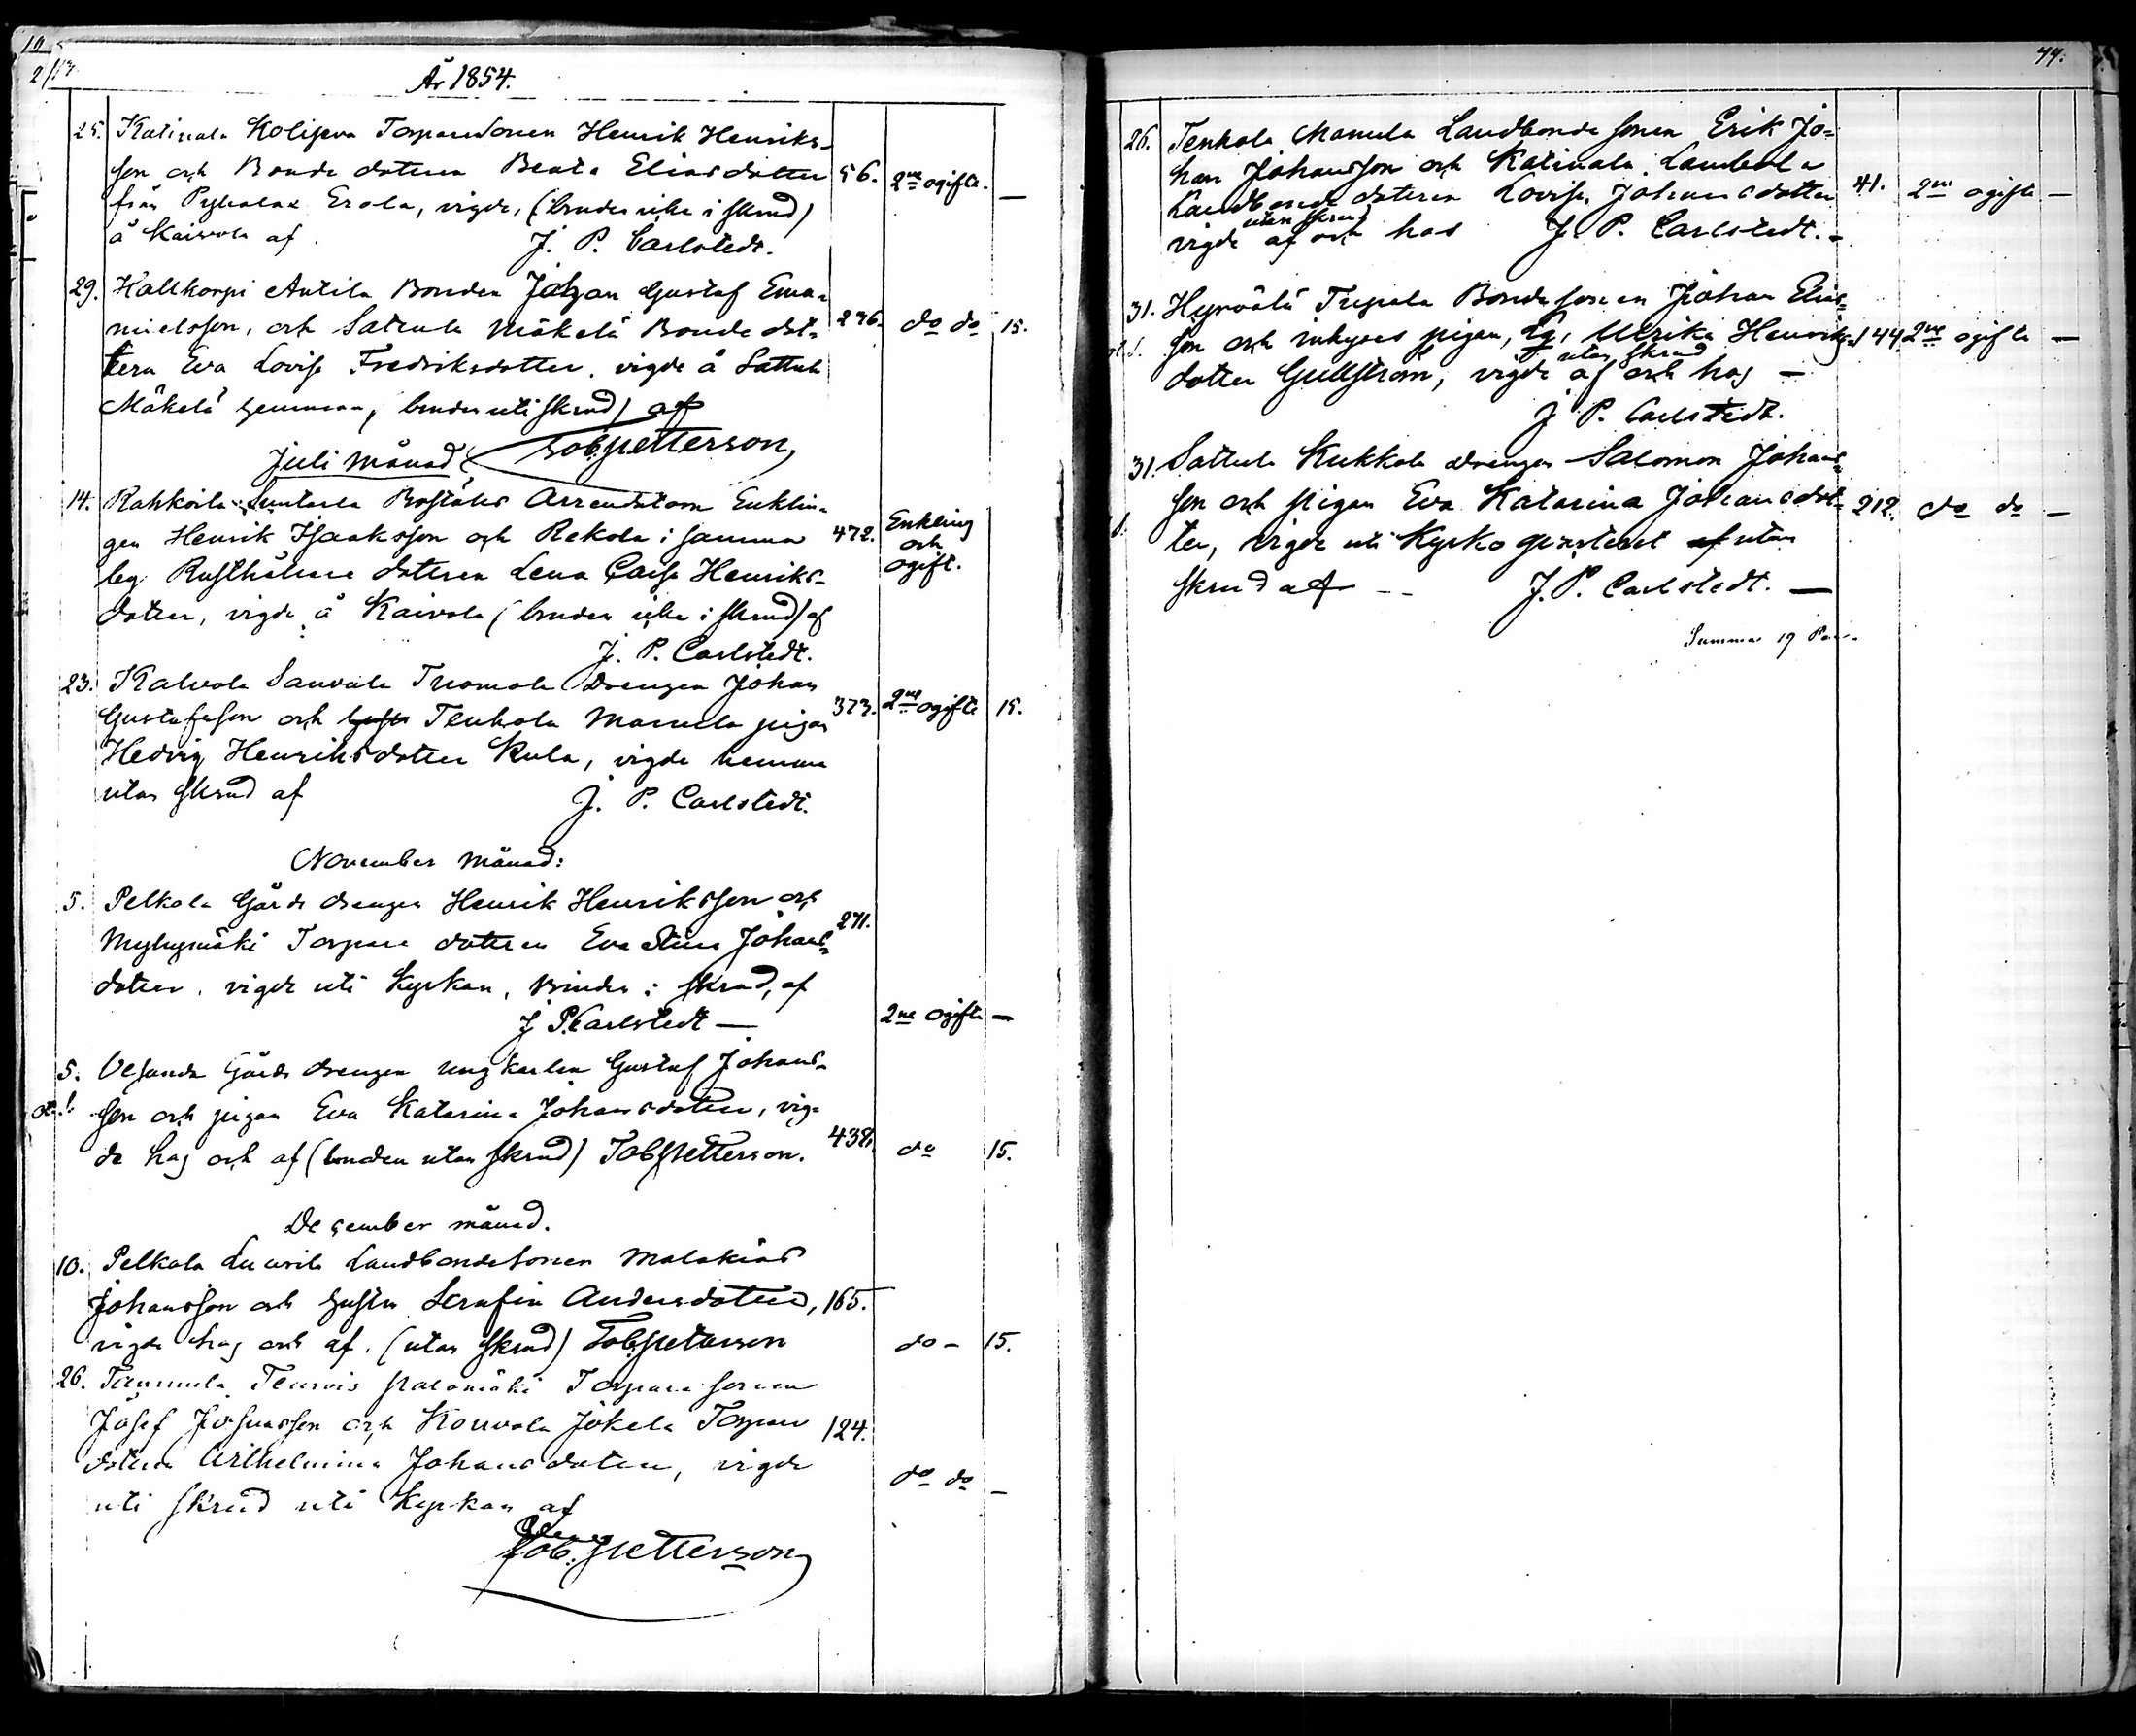 År 1854.
25. Katinala Kolijeva Torparesonen Henrik Henriks-
son och Bonde dottren Beata Eliasdotter 56. 2ne ogifte. —
från Pyhalax Erola, vigde, (bruden icke i skrud)
å Kaivola af J. P. Carlstedt.
29. Hallkorpi Antila Bonden Johan Gustaf Ema-
nuelsson, och Sattula Mäkelä Bonde dot- 276. do do 15.
tern Eva Lovisa Fredriksdotter. vigde å Sattula
Mäkelä hemman, bruden uti skrud) af
Tob. Petterson,
Juli månad
14. Rahkoila Suntarla Boställes Arrendatorn Enklin-
gen Henrik Isaaksson och Rekola i samma 472. Enkling och ogift.
beg. Rusthållare dottren Lena Caisa Henriks-
dotter, vigde å Kaivola (bruden icke i skrud) af
J. P. Carlstedt.
23. Kalvola Sauvala Tuomola Drengen Johan
Gustafsson och Tenhola Manula pigan 373. 2ne ogifte 15.
Hedvig Henriksdotter Kula, vigde hemma
utan skrud af J. P. Carlstedt.
November månad:
5. Pelkola Gårds drengen Henrik Henriksson och
Myllymäki Torpare dottren Eva Stina Johans- 271.
dotter. vigde uti Kyrkan, Bruden i skrud, af
J. P. Carlstedt — 2ne ogifte —
5. Vesunda Gårds drengen ungkarlen Gustaf Johans-
son och pigan Eva Katarina Johansdotter, vig-
de hos och af (bruden utan skrud) Tob. Petterson. 438. do 15.
December månad.
10. Pelkola Laurila Landbondesonen Malakias
Johansson och Serafia Andersdotter, 165.
vigde hos och af. (utan skrud) Tob. Petterson do - 15.
26. Tammula Palomäki Torpare sonen
Josef Josuasson och Kouvola Jokela Torpare 124.
dottren Wilhelmina Johansdotter, vigde do do —
uti skrud uti Kyrkan af
Tob. Petterson
44.
26. Tenhola Manula Landbonde sonen Erik Jo-
han Johansson och Katinala Laurila
Landbonde dottren Lovisa Johansdotter 41. 2ne ogifte —
utan skrud
vigde af och hos J. P. Carlstedt. -
31. Hyrvälä Trepala Bondesonen Johan Elias-
son och inhyses pigan, Ulrika Henriks- 144. 2ne ogifte —
utan skrud
dotter Gullström, vigde af och hos —
J. P. Carlstedt.
31. Sattula Kukkola drengen Salomon Johans-
son och pigan Eva Katarina Johansdot- 212. do do —
ter, vigde uti Kyrko qvarteret af utan
skrud af -- J. P. Carlstedt. —
Summa 19 Par.